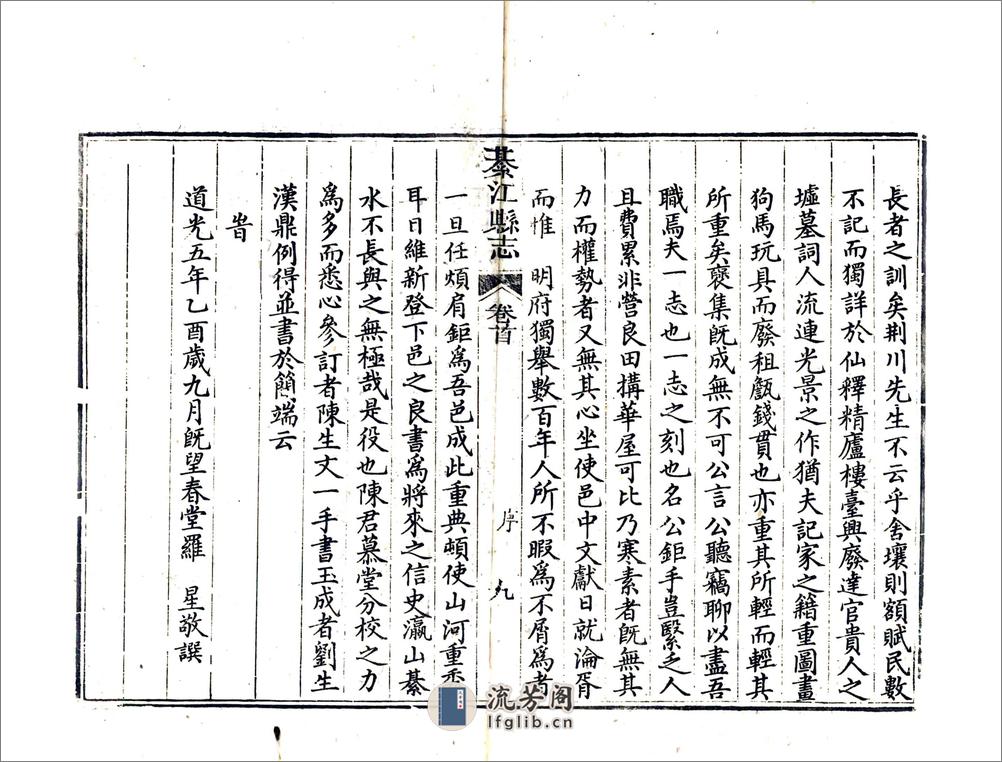 長者之訓矣荆川先生不云乎舍壤則額賦民數
不記而獨詳於仙釋精廬樓臺興廢達官貴人之
墟墓詞人流連光景之作猶夫記家之籍重圖畫
狗馬玩具而廢租甔錢貫也亦重其所輕而輕其
所重矣裒集既成無不可公言公聽竊聊以盡吾
職焉夫一志也一志之刻也名公鉅手豈繄乏人
且費累非營良田構華屋可比乃寒素者既無其
力而權勢者又無其心坐使邑中文獻日就淪胥
而惟 明府獨舉數百年人所不暇爲不屑爲者
綦江縣志 卷首 序 九
一旦任煩肩鉅爲吾邑成此重典頓使山河重秀
耳目維新登下邑之良書爲將來之信史瀛山綦
水不長與之無極哉是役也陳君慕堂分校之力
爲多而悉心參訂者陳生文一手書玉成者劉生
漢鼎例得並書於簡端云
旹
道光五年乙酉歲九月既望春堂羅 星敬譔
流芳阁
lfglib.cn